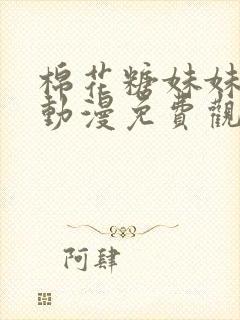 棉花糖妹妹
動漫免費觀
阿肆